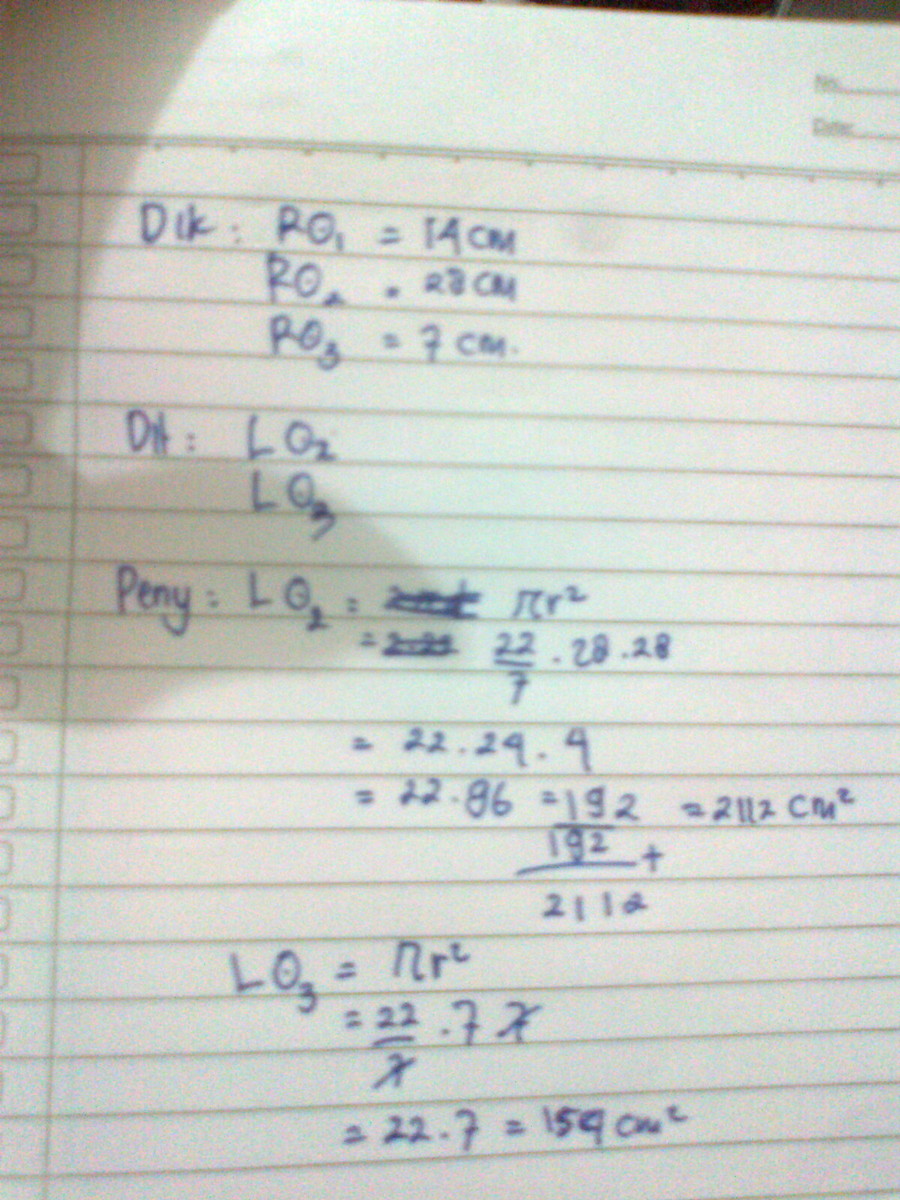 No.
Date:
Dik : RO₁ = 14 cm
RO₂ = 28 cm
RO₃ = 7 cm.
Dit : LO₂
LO₃
Peny : LO₂ = πr²
= 22/7 . 28 . 28
= 22 . 24 . 4
= 22 . 96 = 192 = 2112 cm²
192 +
2112
LO₃ = πr²
= 22/7 . 7 7
= 22 . 7 = 154 cm²